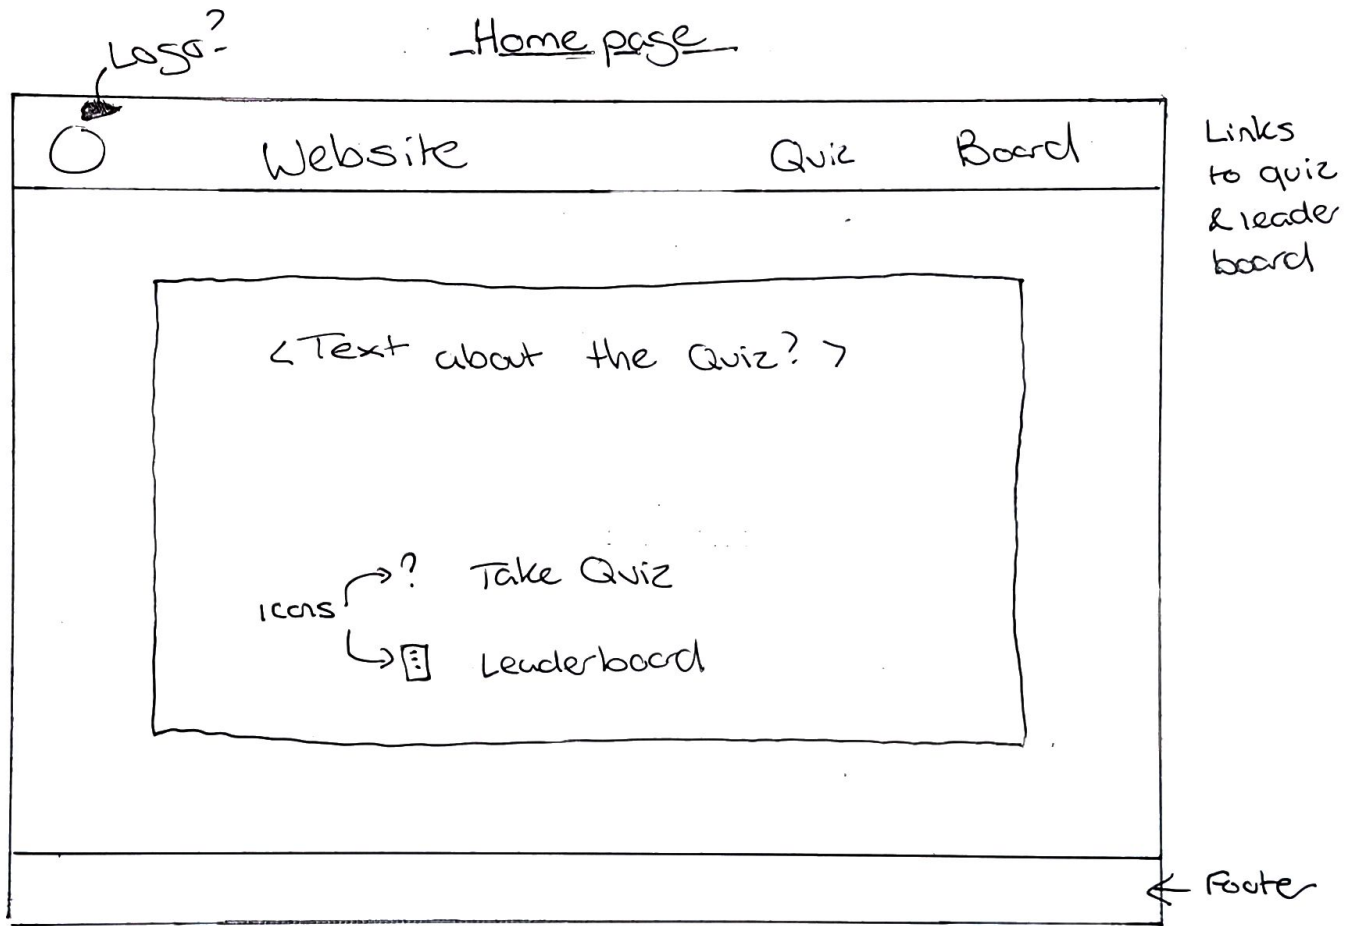 Home page
Logo?
Website Quiz Board
Links
to quiz
& leader
board
<Text about the Quiz?>
icons
? Take Quiz
Leaderboard
Footer